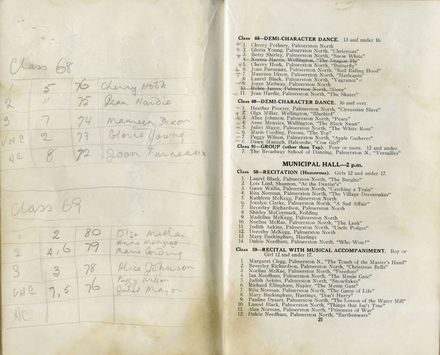 Class 68
5 76 Cherry Hook
2 " 75 Jean Hardie
3 7 74 Maureen Dixon
VHC 2 73 Gloria Young
HC 8 72 Joan Furneaux
Class 69
2 80 Olga Millar
2 4, 6 79
3 3 78 Alice Johnson
VHC 7, 5 76 Peggy Wilson
Juliet Major
HC
Class 68—DEMI-CHARACTER DANCE. 13 and under 16.
1. Cherry Pothary, Palmerston North
2. Gloria Young, Palmerston North, "Christmas"
3. Betty Shirley, Palmerston North, "Snow White"
4. Norma Harris, Wellington, "The Dragon Fly"
5. Cherry Hook, Palmerston North, "Butterfly"
6. Joan Furneaux, Palmerston North, "Red Riding Hood"
7. Maureen Dixon, Palmerston North, "Harlequin"
8. Laurel Black, Palmerston North, "Vagrants"
9. Joyce Medway, Palmerston North
10. Robin James, Palmerston North,
11. Jean Hardie, Palmerston North, "The Skater"
Class 69—DEMI-CHARACTER DANCE. 16 and over
1. Heather Procter, Palmerston North, "Circassian Slave"
2. Olga Millar, Wellington,
3. Alice Johnson, Palmerston North, "Peace"
4. Anne Menzies, Wellington, "The Black Swan"
5. Juliet Major, Palmerston North, "The White Rose"
6. Marie Cording, Petone, "The Toy"
7. Peggy Wilson, Palmerston North, "Apple Gatherer"
8. Dawn Managh, Halcombe, "Cow Girl"
Class 91—GROUP (other than Tap). Four or more. 12 and under.
7. The Broadway School of Dancing, Palmerston N., "Versailles"
MUNICIPAL HALL—2 p.m.
Class 58—RECITATION (Humorous). Girls 12 and under 17.
1. Laurel Black, Palmerston North, "The Burglar"
2. Lois Lind, Shannon, "At the Dentist's"
3. Gwen Wallis, Palmerston North, "Catching a Train"
4. Rita Norman, Palmerston North, "The Village Dressmaker"
5. Kathleen McKegg, Palmerston North
6. Jocelyn Clarke, Palmerston North, "A Sad Affair"
7. Beverley Richardson, Palmerston North
8. Shirley McCormack, Feilding
9. Madeline McKegg, Palmerston North
10. Noeline McRae, Palmerston North, "The Leak"
11. Judith Aitkins, Palmerston North, "Uncle Podger"
12. Dorothy McKegg, Palmerston North
13. Mary Buckingham, Hastings
14. Dulcie Needham, Palmerston North, "Who Won?"
Class 59—RECITAL WITH MUSICAL ACCOMPANIMENT. Boy or Girl 12 and under 17.
1. Margaret Clapp, Palmerston N., "The Touch of the Master's Hand"
2. Beverley Richardson, Palmerston North, "Christmas Bells"
3. Noeline McRae, Palmerston North, "Freedom"
4. Ian Needham, Palmerston North, "The Menin Gate"
5. Judith Aitkins, Palmerston North, "Snowflakes"
6. Richard Ellingham, Napier, "The Menin Gate"
7. Rita Norman, Palmerston North, "The Game of Life"
8. Mary Buckingham, Hastings, "Don't Hurry"
9. Pauline Dysart, Palmerston North, "The Lesson of the Water Mill"
10. Laurel Black, Palmerston North, "Things that Isn't True"
11. Alan Norman, Palmerston North, "Prisoners of War"
12. Dulcie Needham, Palmerston North, "Earthenware"
21